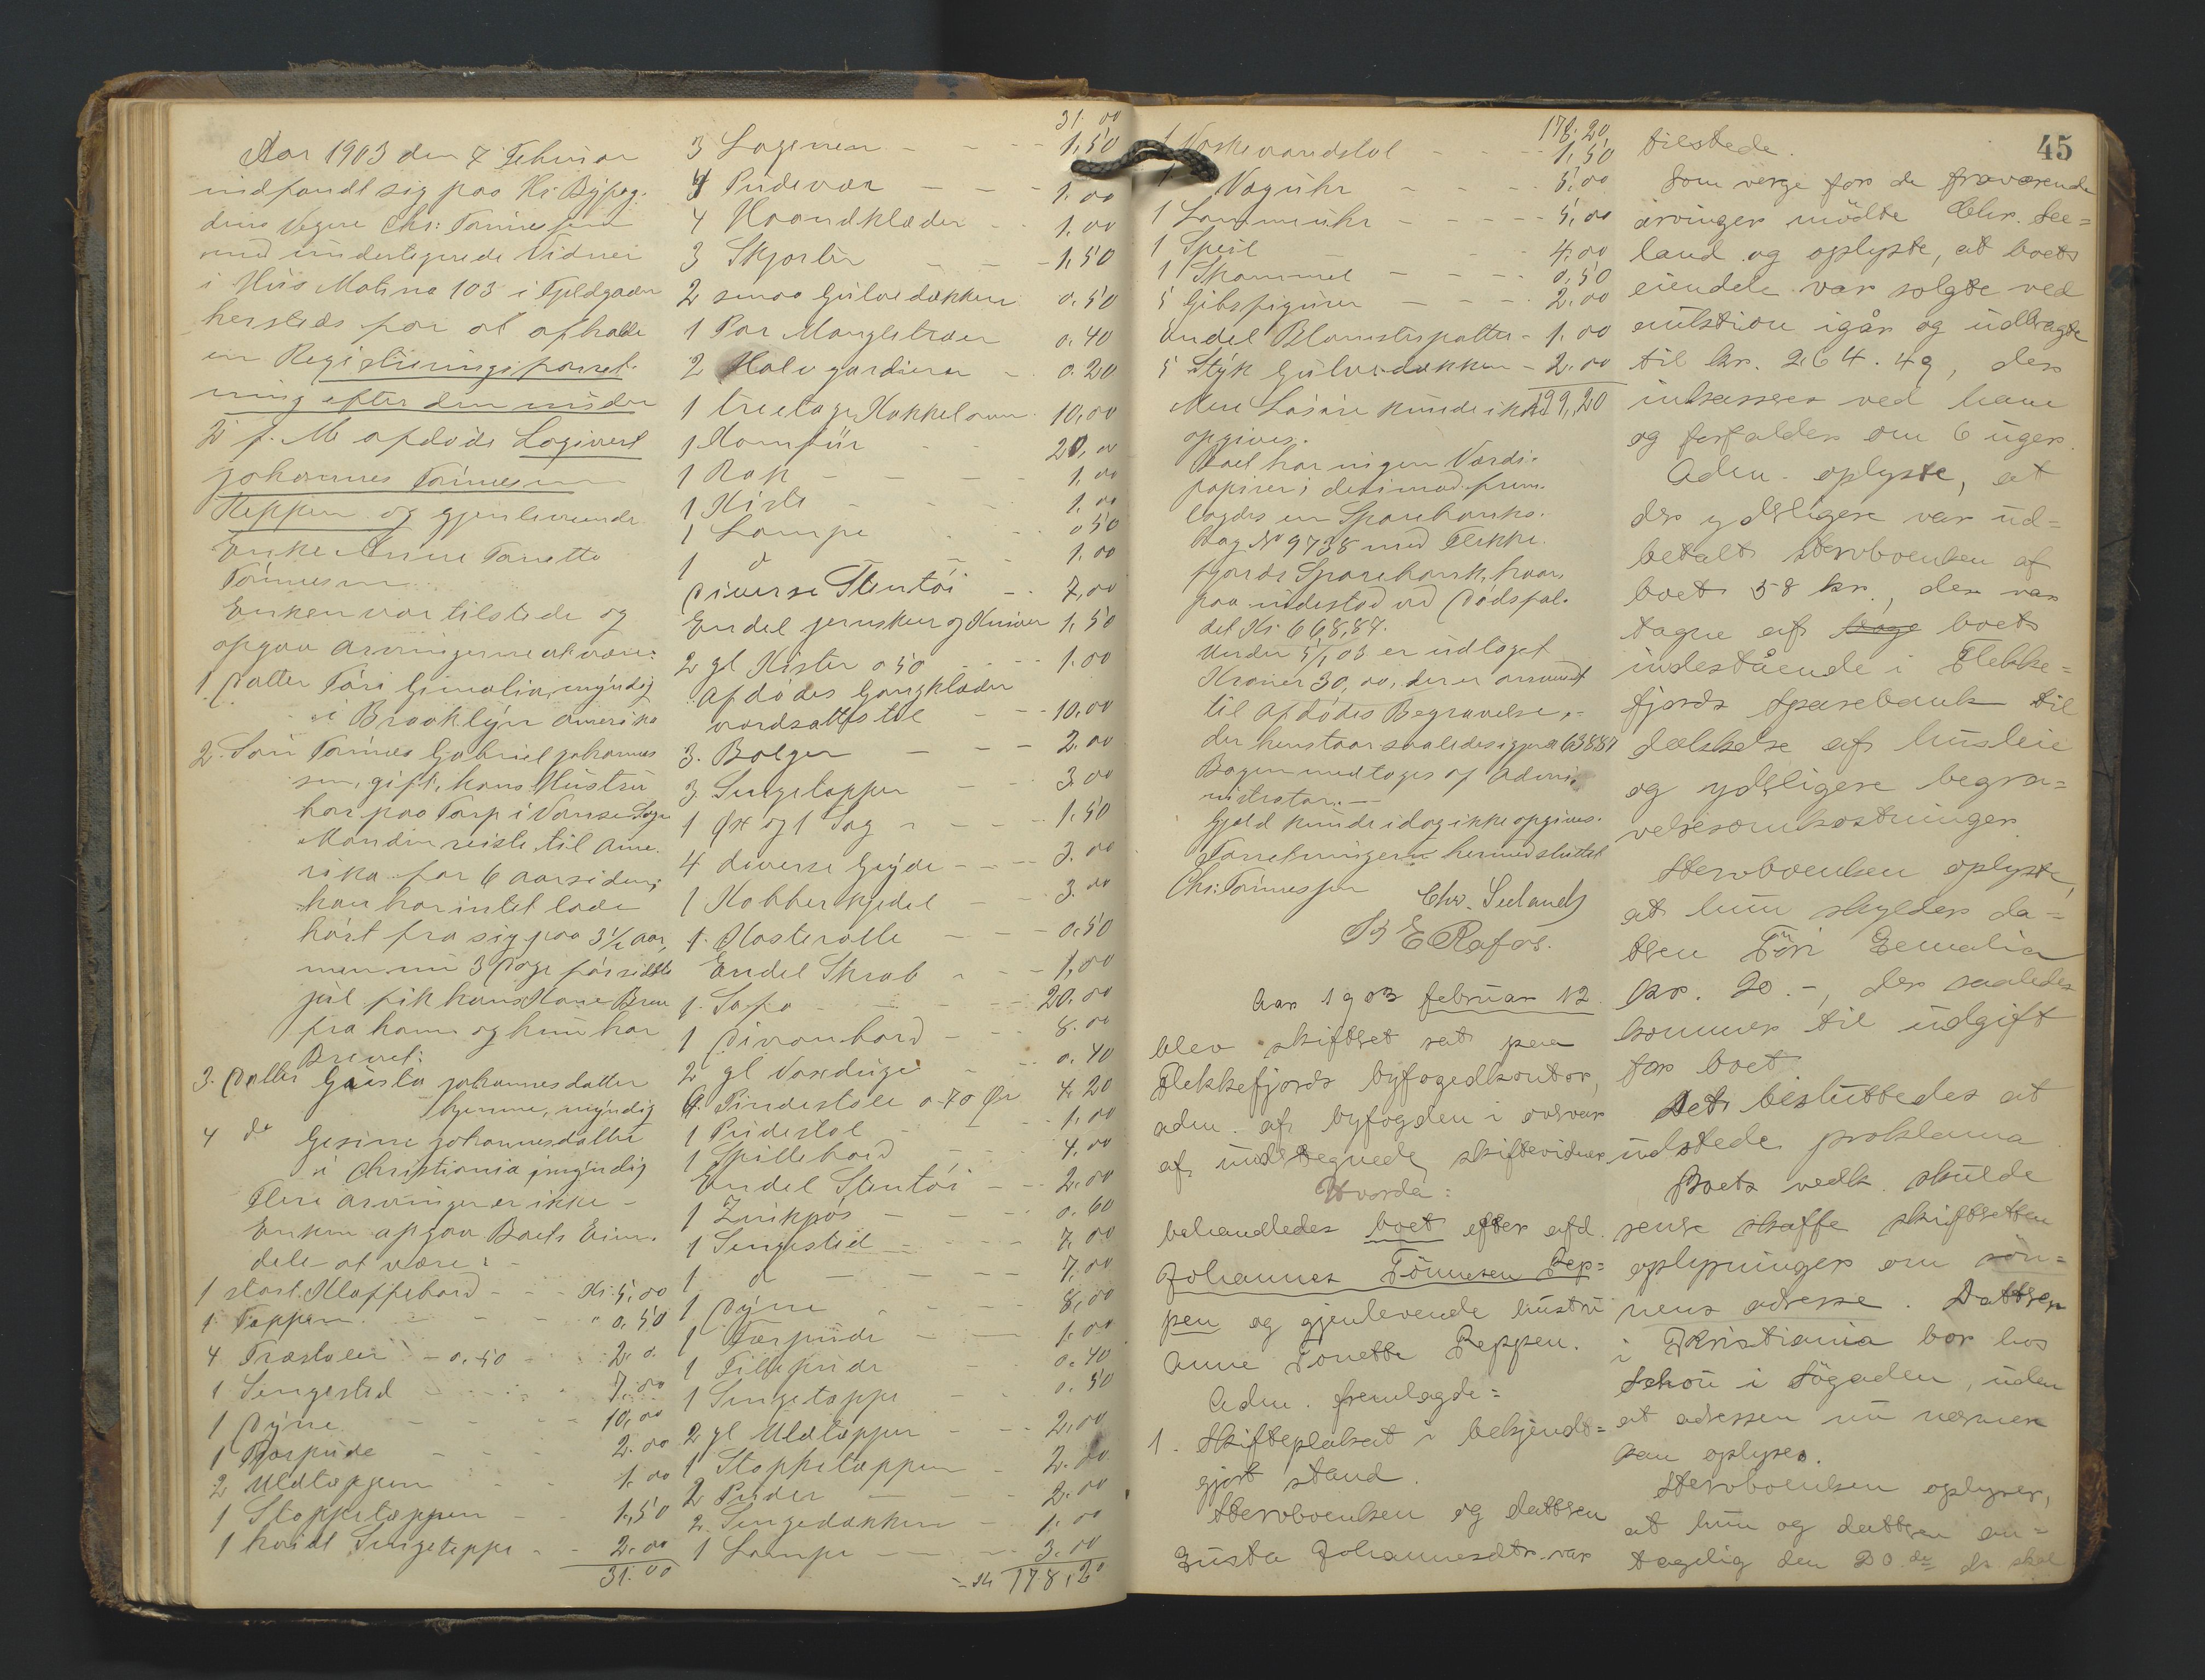 Aar 1903 den 7 Februar
indfandt sig paa Hr. Byfog-
dens Vegne Chr: Tönnessen
med undertegnede Vidner
i Hus Matr. no 103 i Fjeldgaden
hersteds for at afholde
en Registreringsforret-
ning efter den under
2 f. M. afdöde Logivert
Johannes Tönnesen
Reppen og gjenlevende
Enke Anne Tonette
Tönnesen.
Enken var tilstede og
opgav Arvingerne at være:
1. Datter Töri Gimalia, myndig
i Brooklyn Amerika
2. Sön Tönnes Gabriel Johannes
sen, gift, hans Hustru
bor paa Torp i Vanse Sogn
Manden reiste til Ame-
rika for 6 aar siden;
han har intet lade
hört fra sig paa 3½ Aar,
men nu 3 Dage för sidste
jul fik hans Kone Brev
fra ham og hun har
Brevet:
3. Datter Gusta Johannesdatter
hjemme, myndig
4 do Gesine Johannesdatter
i Christiania, myndig
Flere arvinger er ikke -
Enken opgav Boets Eien-
dele at være:
1 stort Klaffebord - - - Kr. 5,00
1 Teppen - - - " 0,50
4 Træstoler - 0,50 - - 2.00
1 Sengested - - - 7.00
1 Dyne - - - 10,00
1 Pude - - - 2.00
2 Uldtæppen - - 1.00
1 Stoppetæppen - - 1,50
1 hvidt Sengeteppe - - 2.00
31.00
31.00
3 Lagenen - - - 1,50
4 Pudevar - - - 1.00
4 Haandklæder - - 1.00
3 Skjorter - - - 1,50
2 smaa Gulvedækken 0.50
1 Par Mangletræer 0.40
2 Halvgardiner - 0.20
1 treetages Kakkelovn 10,00
1 Komfür - - 20,00
1 Rok - - - 1,00
1 Kiste - - - 1.00
1 Lampe - - 0 50
1 d - - - 1.00
Diverse Stentöi - - 7,00
Endel jernskeer og Kniver 1,50
2 gl Kister a 50 - - - 1.00
Afdödes Gangklæder
værdsættes tel - - - 10.00
3. Balger - - - 2.00
3 Sengetæpper - - 3.00
1 Öx og 1 Sag - - - 1.50
4 diverse Gryder - - - 3.00
1 Kobberkjedel - - 3.00
1. Klæderolle - - - 0.50
Endel Skrab - - - 1,00
1. Sofa - - - 20.00
1 Divanbord - - - 8.00
2 gl Voxduge - - 0.40
6. Pindestole a 70 Öre 4.20
1 Pidestal - - - 1,00
1 Spillebord - - - 4,00
Endel Stentöi - - - 2.00
1 Zinkpös - - - 0.60
1 Sengested - - - 7.00
1 d - - - 7.00
1 Dyne - - - 8.00
1 Fjærpude - - 1.00
1 Fillepude - 0.40
1 Sengetæppe - 0.50
2 gl Uldtæpper - - 2.00
1 Stoppetæppen - 2.00
2 Puder - - 2.00
2. Sengedækken - 1.00
1 Lampe - - - 3.00
178,20
178.20
1 Vaskevandstol - - - 1,50
1 Væguhr - - - 5.00
1 Lommeuhr - - - 5,00
1 Speil - - 4.00
1 Skammel - - - 0,50
5 Gibsfigurer - - - 2.00
Endel Blomsterpotter - 1.00
5 Styk Gulvedækken - 2.00
199,20
Mere Lösöre kunde ikke
opgives.
Boet har ingen Værdi-
papirer; derimod frem-
lagdes en Sparebanks-
bog No 9738 med Flekke-
fjords Sparebank, hvor-
paa indestod ved Dödsfal-
det Kr. 668,87.
Under 5/1 03 er udtaget
Kroner 30,00, der er anvendt
til Afdödes Begravelse,
der henstaar saaledes igjen 638.87
Bogen medtoges af Admi-
nistrator. -
Gjæld kunde idag ikke opgives.
Forretningen hermed sluttet
Chr: Tönnessen Chr. Seeland
B E Rafos.
Aar 1903 februar 12.
blev skifteret sat paa
Flekkefjords byfogedkontor,
adm. af byfogden i overvær
af undertegnede skiftevidner
Hvorda:
behandledes boet efter afd.
Johannes Tönnesen Rep=
pen og gjenlevende hustru
Anne Tonette Reppen.
Adm. fremlagde=
1. Skifteplakat i bekjendt=
gjort stand.
Stervboenken og datteren
Gusta Johannesdtr. var
45
tilstede.
Som verge for de fraværende
arvinger mödte Chr. See=
land og oplyste, at boets
eiendele var solgte ved
auktion igår og udbragte
til kr. 264.49, der
inkasseres ved ham
og forfalder om 6 uger.
Adm. oplyste, at
der yderligere var ud=
betalt stervboenken af
boet 58 kr., der var
tagne af boets
indestående i Flekke=
fjords sparebank til
dækkelse af husleie
og yderligere begra=
velsesomkostninger.
Stervboenken oplyste,
at hun skylder da=
tteren Töri Gemalia
kr. 20.-, der saaledes
kommer til udgift
for boet.
Det besluttedes at
udstede proklama.
Boets vedk. skulde
senere skaffe skifteretten
oplysninger om sön=
nens adresse. Datteren
i Kristiania bor hos
Schou i Søgaden, uden
at adressen nu nærmere
kan oplyses.
Stervboenken oplyser,
at hun og datteren an=
tagelig den 20.de ds skal